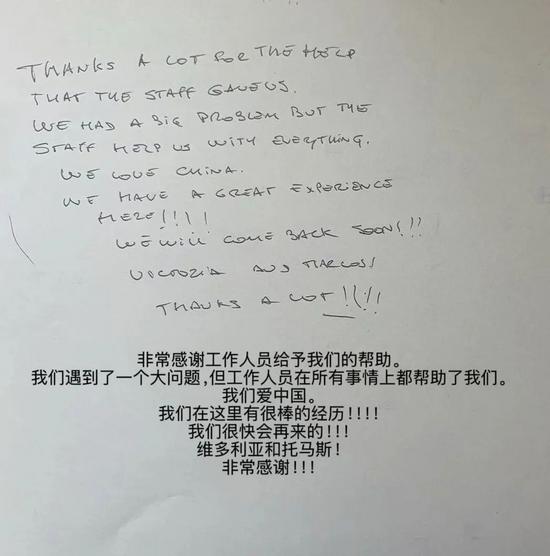 THANKS A LOT FOR THE HELP
THAT THE STAFF GAVE US.
WE HAD A BIG PROBLEM BUT THE
STAFF HELP US WITH EVERYTHING.
WE LOVE CHINA.
WE HAVE A GREAT EXPERIENCE
HERE!!!!
WE WILL COME BACK SOON!!!
VICTORIA AND MARCOS!
THANKS A LOT!!!!
非常感谢工作人员给予我们的帮助。
我们遇到了一个大问题,但工作人员在所有事情上都帮助了我们。
我们爱中国。
我们在这里有很棒的经历!!!!
我们很快会再来的!!!
维多利亚和托马斯!
非常感谢!!!